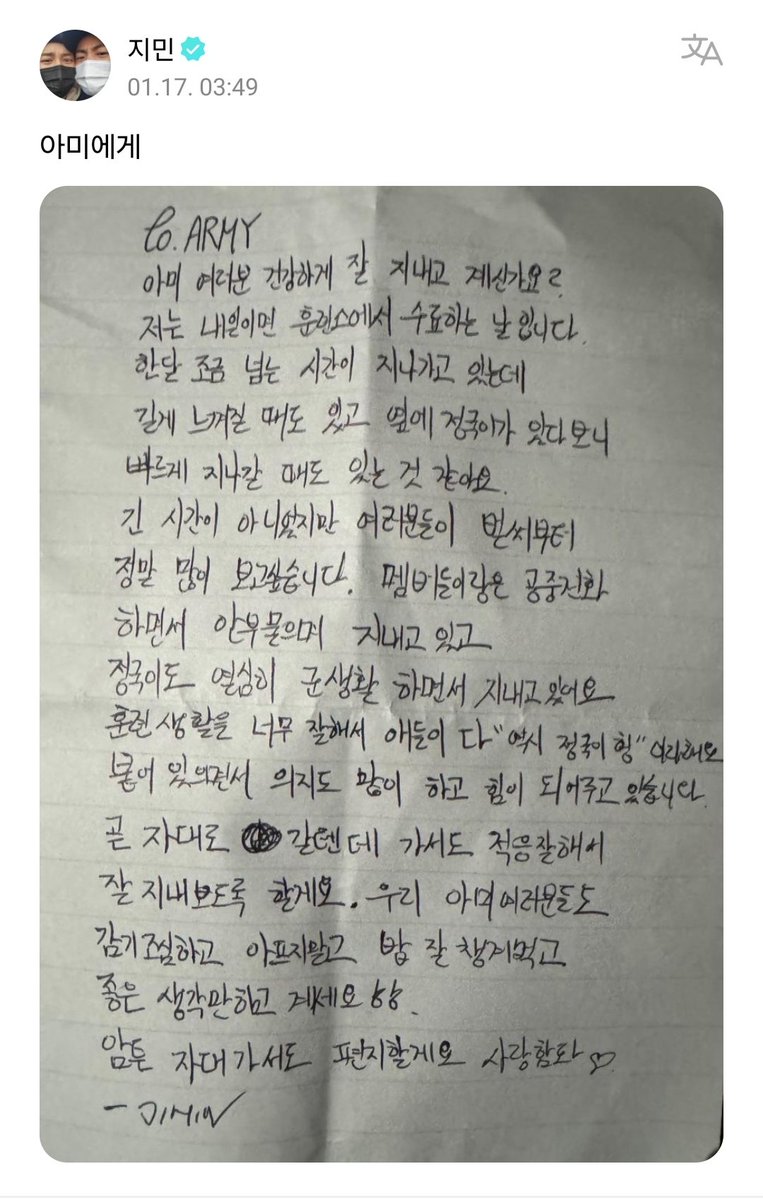 지민
01.17. 03:49
아미에게
to. ARMY
아미 여러분 건강하게 잘 지내고 계신가요?
저는 내일이면 훈련소에서 수료하는 날입니다.
한달 조금 넘는 시간이 지나가고 있는데
길게 느껴질 때도 있고 옆에 정국이가 있다보니
빠르게 지나갈 때도 있는 것 같아요.
긴 시간이 아니었지만 여러분들이 벌써부터
정말 많이 보고싶습니다. 멤버들이랑은 공중전화
하면서 안부물으며 지내고 있고
정국이도 열심히 군생활 하면서 지내고 있어요
훈련 생활을 너무 잘해서 애들이 다 "역시 정국이 형" 이라해요
붙어 있으면서 의지도 많이 하고 힘이 되어주고 있습니다.
곧 자대로 갈텐데 가서도 적응잘해서
잘 지내보도록 할게요. 우리 아미여러분들도
감기조심하고 아프지말고 밥 잘 챙겨먹고
좋은 생각만하고 계세요 핫.
암튼 자대가서도 편지할게요 사랑함돠♡
- JIMIN